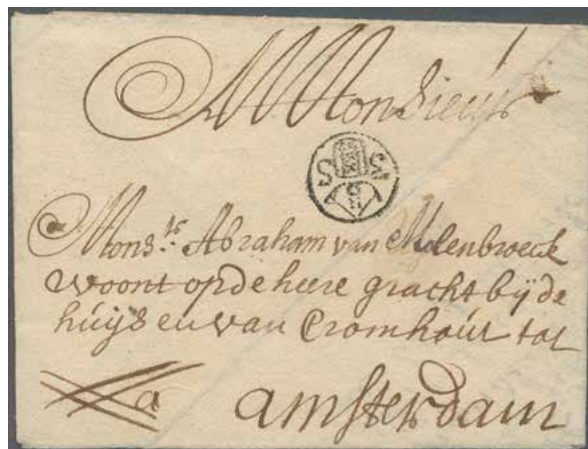 Monsieur
S S
Mons.^r Abraham van Molenbroeck
woont op de heere gracht bij de
huijsen van Cromhout tot
a amsterdam